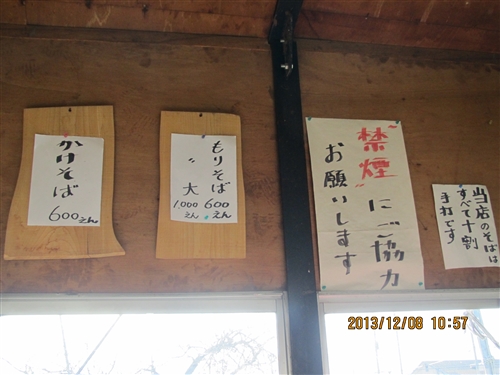 かけそば
600えん
もりそば 600えん
〃 大 1,000えん
"禁煙"にご協力
お願いします
当店のそばは
すべて十割
手打です
2013/12/08 10:57